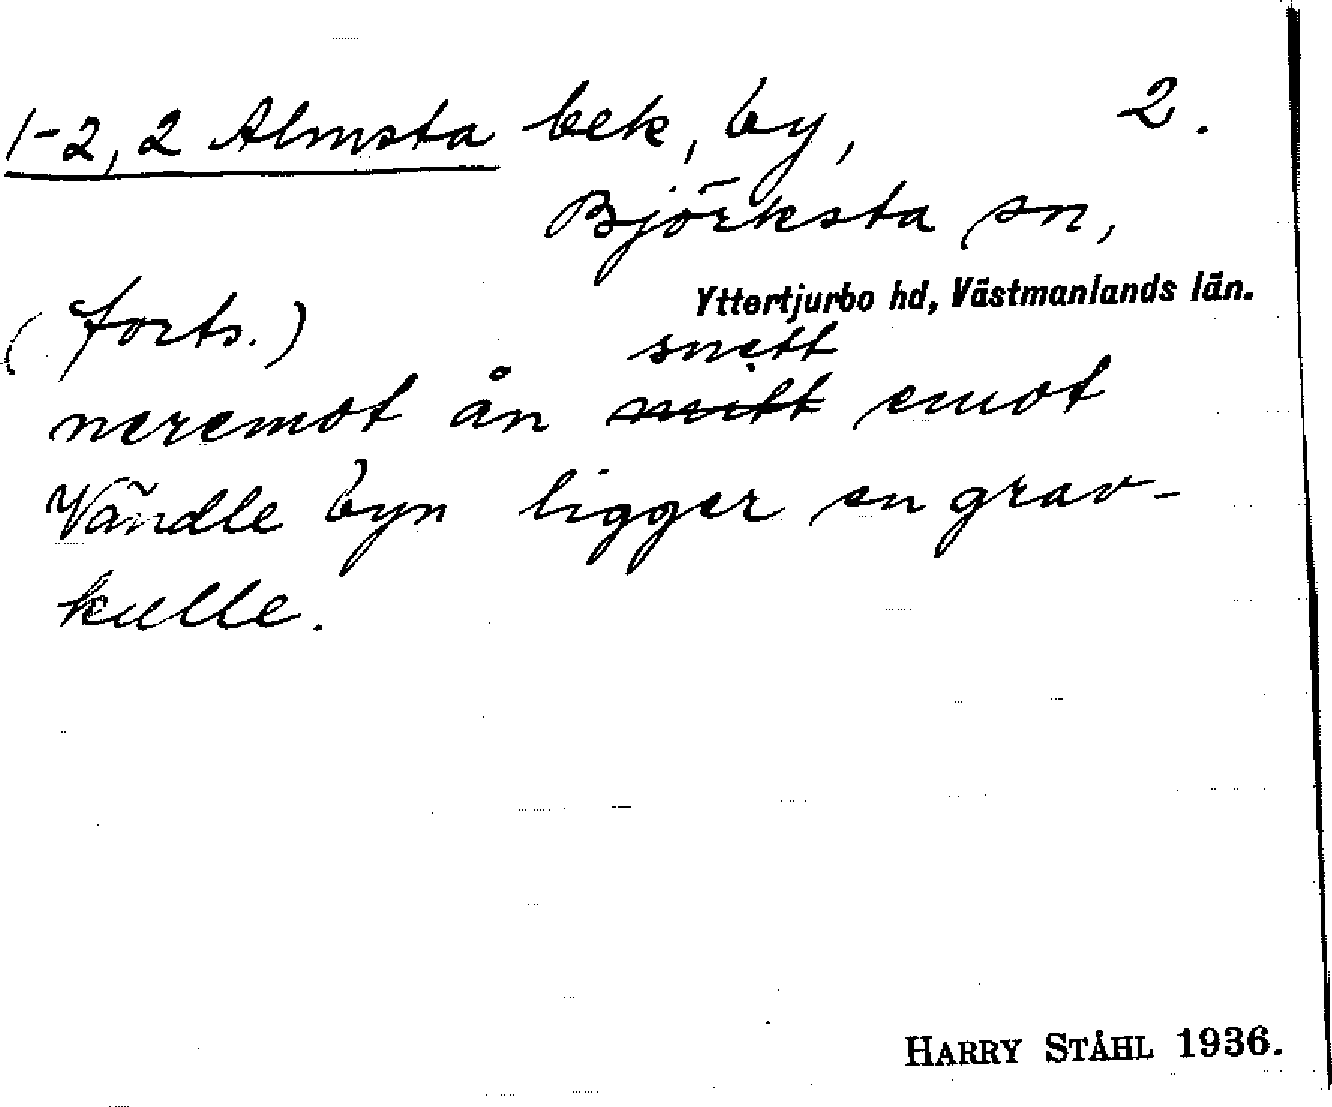 1-2, 2 Almsta bek, by, 2.
Björksta sn,
Yttertjurbo hd, Västmanlands län.
(forts.)
snett
neremot ån emot
Vändle byn ligger en grav-
kulle.
HARRY STÅHL 1936.